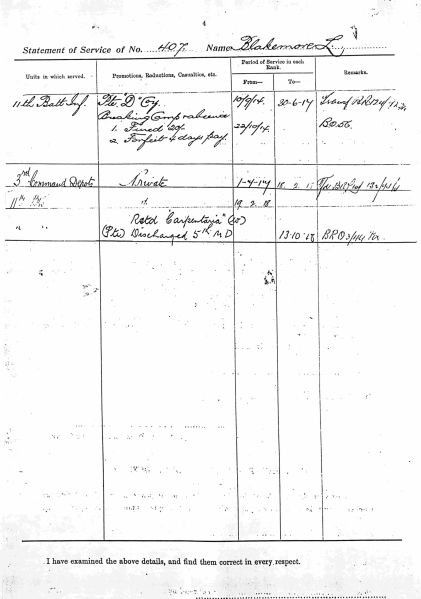 4
Statement of Service of No. 407. Name Blakemore L.
Units in which served. Promotions, Reductions, Casualties, etc. Period of Service in each Rank. Remarks.
From— To—
11th Batt Inf. Pte "D" Coy. 10/9/14. 30-6-17
Breaking Camp absence
1. Fined 20/- 22/10/14. B.O.56.
2. Forfeit 4 days pay.
3rd Command Depot Private 1-4-17 18. 2. 18
11th " 19. 2. 18.
Retd "Carpentaria"
" " (Pte) Discharged 5th M D 13-10-18
I have examined the above details, and find them correct in every respect.